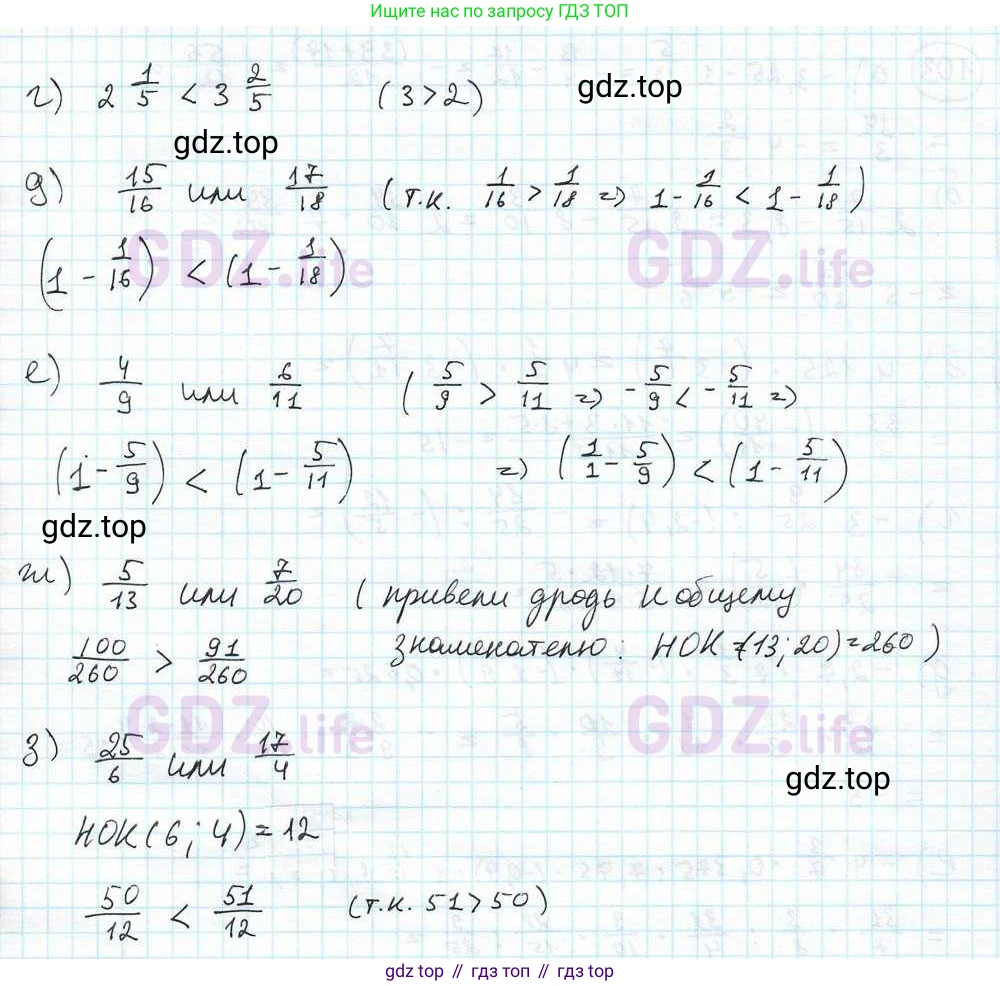 Ищите нас по запросу ГДЗ ТОП
г) 2 1/5 < 3 2/5 (3>2)
gdz.top
gdz.top
д) 15/16 или 17/18 (т.к. 1/16 > 1/18 => 1 - 1/16 < 1 - 1/18)
GDZ.life GDZ.life
(1 - 1/16) < (1 - 1/18)
е) 4/9 или 6/11 (5/9 > 5/11 => -5/9 < -5/11 =>
(1 - 5/9) < (1 - 5/11) => (1/1 - 5/9) < (1 - 5/11)
gdz.top
ж) 5/13 или 7/20 (привели дродь к общему
100/260 > 91/260 знаменателю: НОК (13; 20) = 260)
GDZ.life GDZ.life
з) 25/6 или 17/4
gdz.top
НОК (6; 4) = 12
50/12 < 51/12 (т.к. 51>50)
gdz.top // гдз топ // gdz top